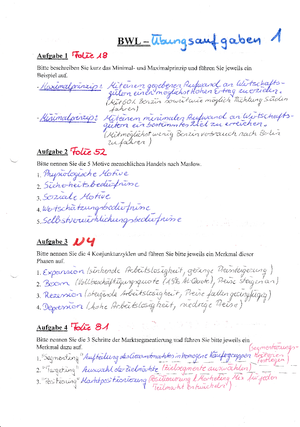 BWL – Übungsaufgaben 1
Aufgabe 1 Folie 18
Bitte beschreiben Sie kurz das Minimal- und Maximalprinzip und führen Sie jeweils ein
Beispiel auf.
- Maximalprinzip: Mit einem gegebenen Aufwand an Wirtschafts-
gütern einen möglichst hohen Ertrag zu erzielen.
(Mit 60l Benzin soweit wie möglich Richtung Süden
fahren)
- Minimalprinzip: Mit einem minimalen Aufwand an Wirtschafts-
gütern ein bestimmtes Ziel zu erreichen.
(Mit möglichst wenig Benzinverbrauch nach Berlin
zu fahren)
Aufgabe 2 Folie 52
Bitte nennen Sie die 5 Motive menschlichen Handels nach Maslow.
1. Physiologische Motive
2. Sicherheitsbedürfnisse
3. Soziale Motive
4. Wertschätzungsbedürfnisse
5. Selbstverwirklichungsbedürfnisse
Aufgabe 3 N4
Bitte nennen Sie die 4 Konjunkturzyklen und führen Sie bitte jeweils ein Merkmal dieser
Phasen auf.
1. Expansion (sinkende Arbeitslosigkeit, geringe Preissteigerung)
2. Boom (Vollbeschäftigungsquote Preise steigen an)
3. Rezession (steigende Arbeitslosigkeit, Preise fallen geringfügig)
4. Depression (hohe Arbeitslosigkeit, niedrige Preise)
Aufgabe 4 Folie 81
Bitte nennen Sie die 3 Schritte der Marktsegmentierung und führen Sie bitte jeweils ein
Merkmal dazu auf.
1. "Segmenting" Aufteilung des Gesamtmarktes in homogene Käufergruppen (Segmentierungs-
kriterien
festlegen)
2. "Targeting" Auswahl der Zielmärkte (Zielsegmente auswählen)
3. "Positioning" Marktpositionierung (Positionierung & Marketing Mix für jeden
Zielmarkt entwickeln)